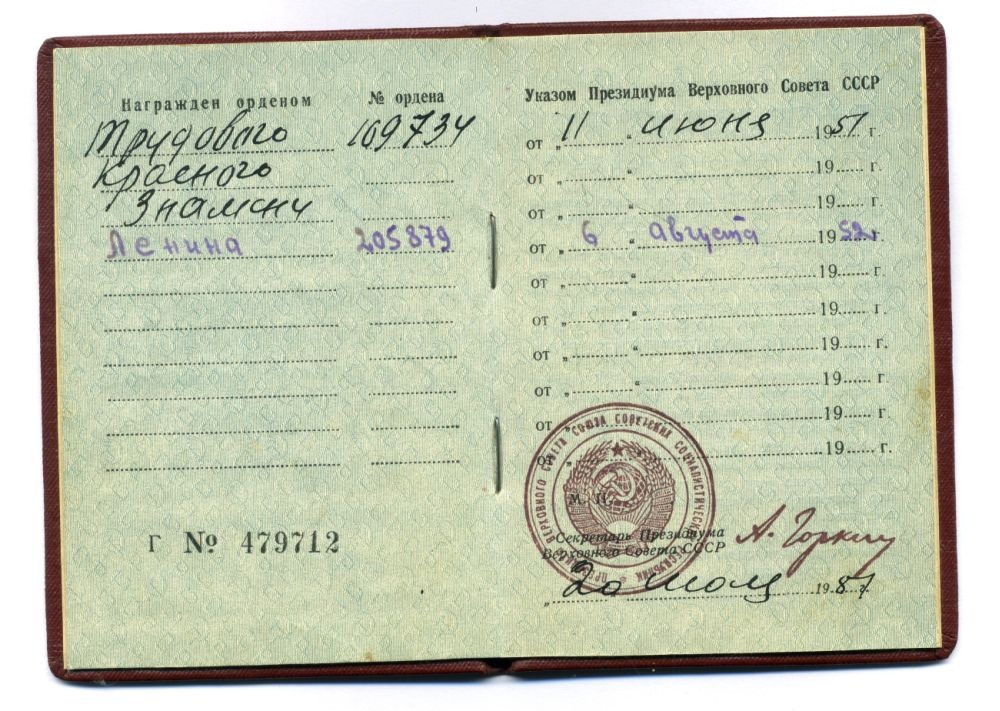 Награжден орденом № ордена
Трудового 169734
Красного
Знамени
Ленина 205879
Г № 479712
Указом Президиума Верховного Совета СССР
от „ 11 “ июня 1951 г.
от „ “ 19 г.
от „ “ 19 г.
от „ 6 “ августа 1952 г.
от „ “ 19 г.
от „ “ 19 г.
от „ “ 19 г.
от „ “ 19 г.
от „ “ 19 г.
„ “ 19 г.
ВЕРХОВНОГО СОВЕТА СОЮЗА СОВЕТСКИХ СОЦИАЛИСТИЧЕСКИХ
М. П.
Секретарь Президиума
Верховного Совета СССР
А. Горкин
„ 20 июля 19 г.